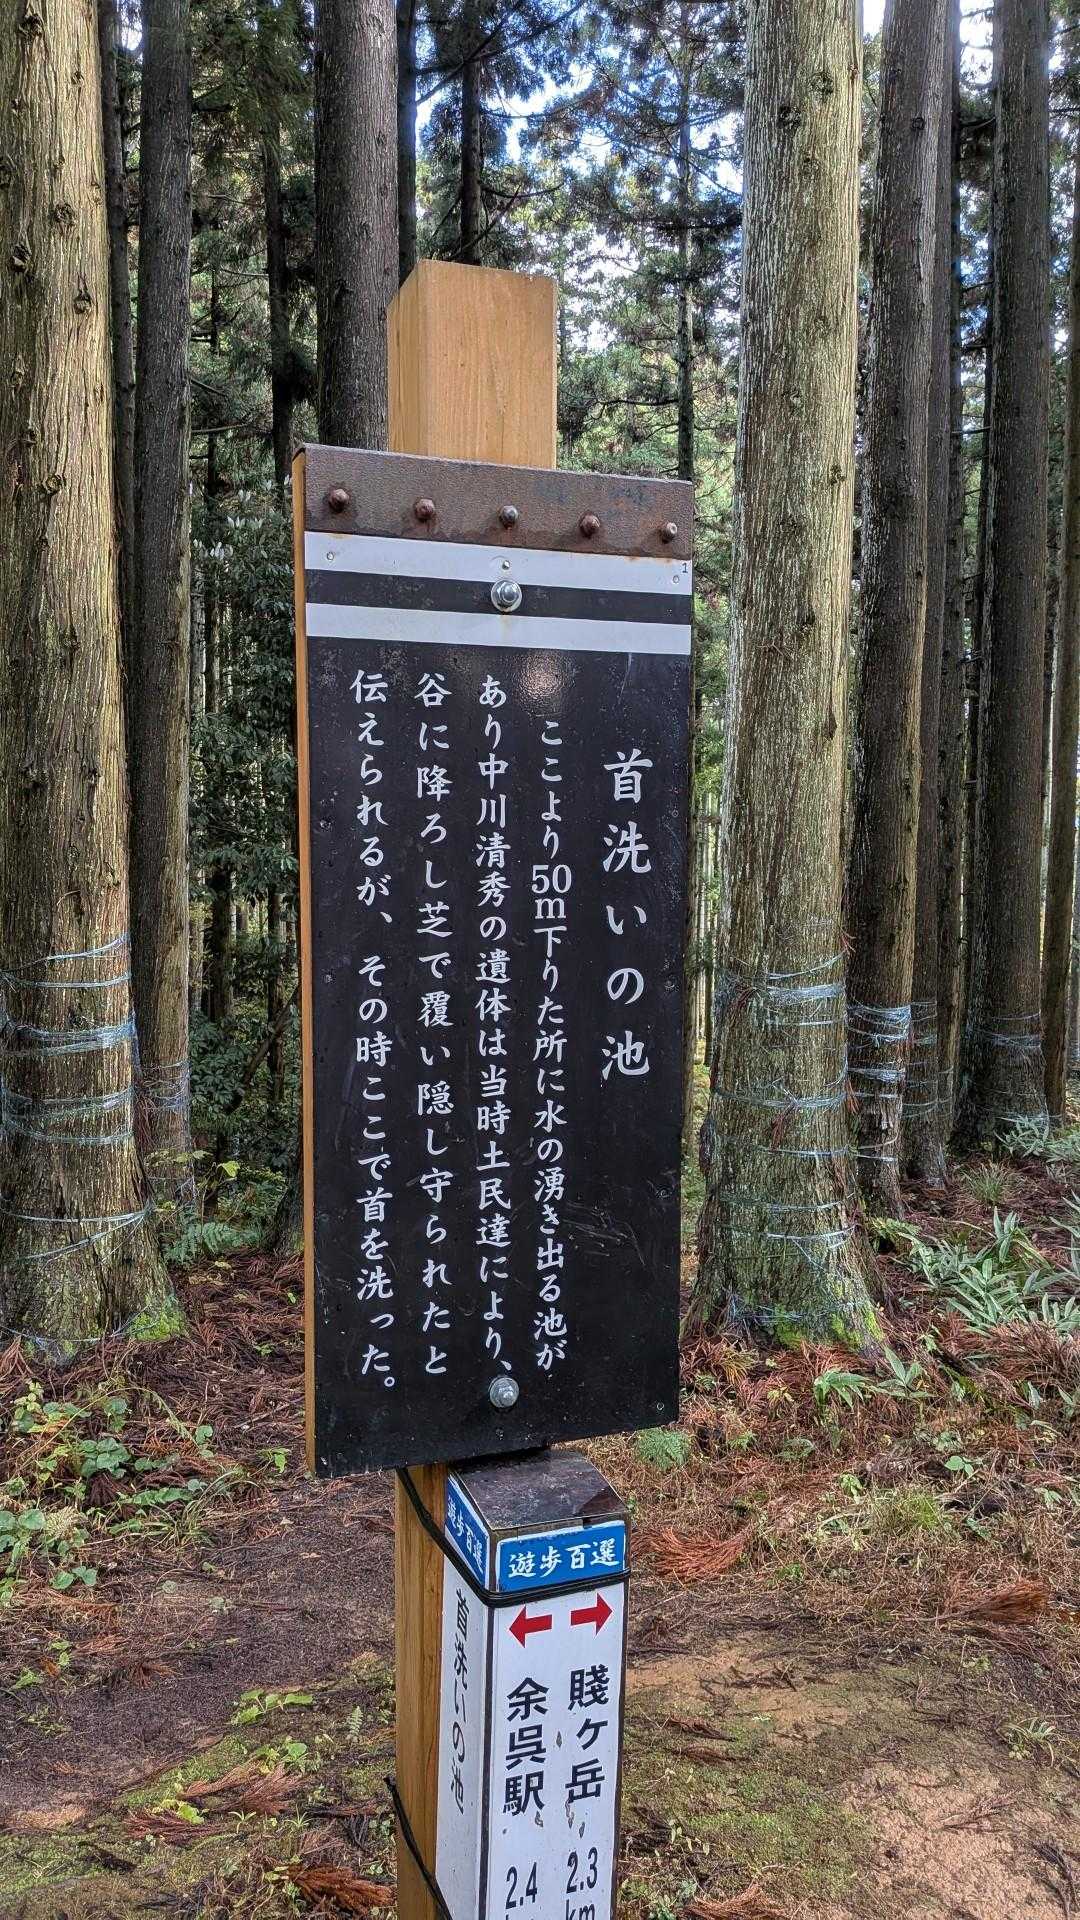 1
首洗いの池
ここより50m下りた所に水の湧き出る池が
あり中川清秀の遺体は当時土民達により、
谷に降ろし芝で覆い隠し守られたと
伝えられるが、その時ここで首を洗った。
遊歩百選
遊歩百選
賤ヶ岳 2.3 km
余呉駅 2.4
首洗いの池